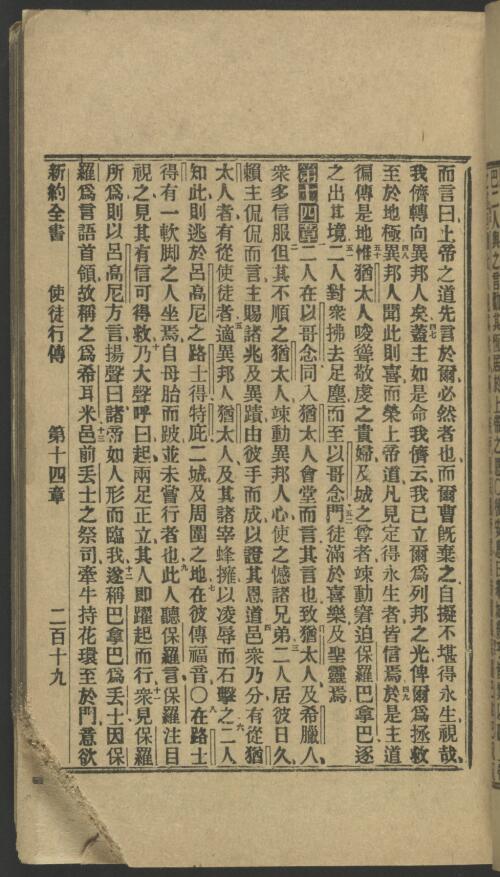 而言曰上帝之道先言於爾必然者也而爾曹既棄之自擬不堪得永生視哉
四七
我儕轉向異邦人矣蓋主如是命我儕云我已立爾爲列邦之光俾爾爲拯救
四八 四九
至於地極異邦人聞此則喜而榮上帝道凡見定得永生者皆信焉於是主道
五十
徧傳是地惟猶太人唆聳敬虔之貴婦及城之尊者竦動窘迫保羅巴拿巴逐
五一 五二
之出其境二人對衆拂去足塵而至以哥念門徒滿於喜樂及聖靈焉
第十四章二人在以哥念同入猶太人會堂而言其言也致猶太人及希臘人
二 三
衆多信服但其不順之猶太人竦動異邦人心使之憾諸兄弟二人居彼日久
四
賴主侃侃而言主賜諸兆及異蹟由彼手而成以證其恩道邑衆乃分有從猶
五 六
太人者有從使徒者適異邦人猶太人及其諸宰蜂擁以凌辱而石擊之二人
七 八
知此則逃於呂高尼之路士得特庇二城及周圍之地在彼傳福音〇在路士
九
得有一軟脚之人坐焉自母胎而跛並未嘗行者也此人聽保羅言保羅注目
十 十一
視之見其有信可得救乃大聲呼曰起兩足正立其人即躍起而行衆見保羅
十二
所爲則以呂高尼方言揚聲曰諸帝如人形而臨我遂稱巴拿巴爲丟士因保
十三
羅爲言語首領故稱之爲希耳米邑前丟士之祭司牽牛持花環至於門意欲
新約全書 使徒行傳 第十四章 二百十九